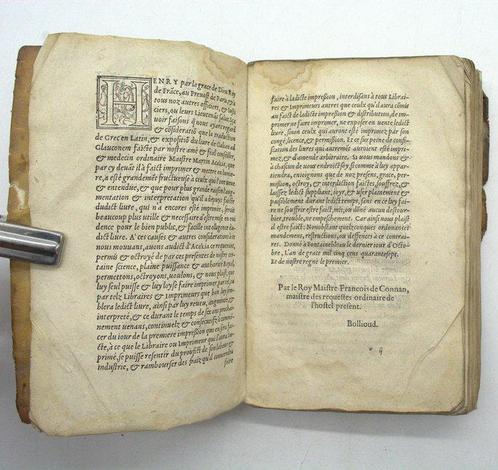 HENRY par la grace de Dieu Roy
de Frãce, au Preuost de Paris, & à
tous noz autres officiers, & iusti
ciers, ou leurs Lieutenãs Salut.
voir faisons
& cõsideratiõ que la
de Grec en Latin, & expositiõ du liure de Galien ad
Glauconem faicte par nostre amé & feal
& medecin ordinaire Maistre Martin Akakia, qui
par cy deuãt il a faict imprimer & mettre en lumie-
re, a esté grandemẽt fructueuse à ceulx qui l'ont veue
& entendue, que pour plus grande
mentation & interpretation qu'il a depuis faict
audict liure, qui n'a pas encores esté imprimé, seroit
beaucoup plus vtille & necessaire
dence pour le bien vtille & facile de l'intelligence
dict liure. A ces causes & autres considerations à ce
nous mouuans, auons audict d'Acakia ce requerant
permis & octroyé de par ces presentes de nostre cer-
taine science, plaine puissance & authorité Royal,
permettons, octroyons, voulons, & nous plaist, que
luy seul puisse & luy loyse faire imprimer
par telz Libraires & Imprimeurs que bon luy sem-
blera ledict liure, ainsi par luy reueu, augmenté, &
interpreté, & ce durant le temps de six ans prochai-
nement uenans, continuelz & consecutifz à commen-
cer du iour de la premiere impression qui en sera fai-
cte, à ce que le Libraire ou Imprimeur qui l'aura im-
primé, se puisse resentir du proufit de son labeur &
industrie, & rambourser des fraiz qu'il conuiendra
faire
faire à ladicte impression, interdisãs à tous Librai-
res & Imprimeurs autres que ceulx qu'il aura cõmis
au faict de ledicte impression & distribution, de im-
primer ne faire imprimer, ne exposer en uente ledict
liure, sinon ceulx qui auront esté imprimez par son
congé, licence, & permission. Et ce sur peine de con-
fiscation des liures qui autremẽt auroiẽt esté imprimez,
& d'amende arbitraire. Si uous mandons & à
chascun de uous endroict soy si comme à luy appar-
tiendra, enioignons, que de noz presens, grace, per-
mission, octroy, & interdiction faictes, souffrez, &
laissez ledict suppliant, ioyr, & user plainement &
paisiblement durant ledict temps, sans en ce luy faire
ne souffrir estre faict, mis, ou donné, aucun destour-
bier, trouble, ou empeschement. Car ainsi nous plaist
il estre faict: Nonobstant quelzconques ordonnances,
mandemens, restrinctions, ou deffences à ce contrai-
res. Donné à Fontainebleau le dernier iour d'Octo-
bre, L'an de grace mil cinq cens quarantesept.
Et de nostre regne le premier.
Par le Roy Maistre Francois de Connan,
maistre des requestes ordinaire de
l'hostel present.
Bollioud.